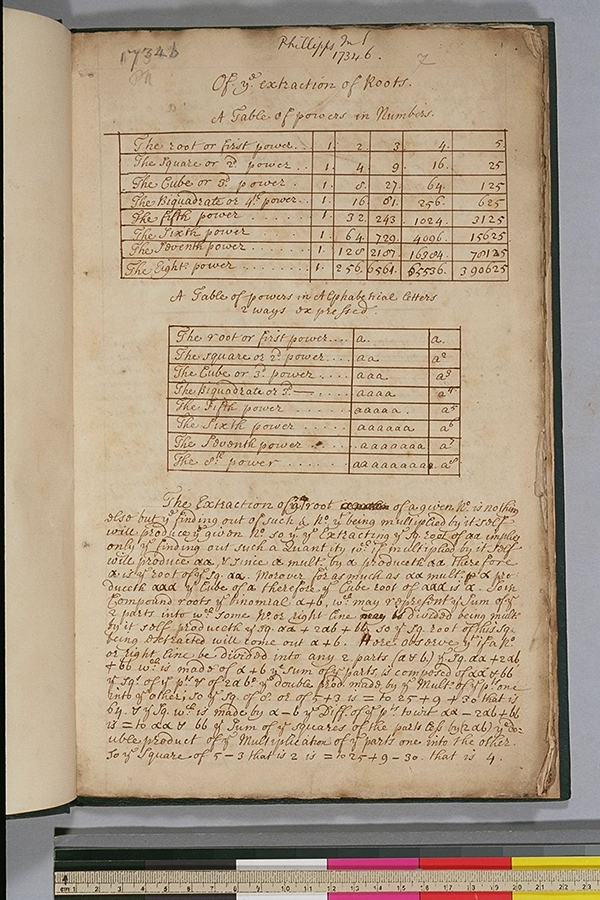 17346
Phillipps MS
17346.
2
Of yᵉ extraction of Roots.
A Table of powers in Numbers.
The root or first power.. 1. 2. 3. 4. 5.
The Square or 2ᵈ power .. 1. 4. 9. 16. 25
The Cube or 3ᵈ power . 1. 8. 27. 64. 125
The Biquadrate or 4ᵗʰ power.. 1. 16. 81. 256. 625
The fifth power ...... 1. 32. 243. 1024. 3125
The Sixth power ...... 1. 64. 729. 4096. 15625
The Seventh power ...... 1. 128 2187 16384. 78125
The Eight power ...... 1. 256. 6561. 65536. 390625
A Table of powers in Alphabetical letters
2 ways expressed.
The root or first power.... a. a.
The square or 2ᵈ power.... aa a²
The Cube or 3ᵈ power .... aaa. a³
The Biquadrate or 3ᵈ — .... aaaa a⁴
The Fifth power .... aaaaa . a⁵
The Sixth power .... aaaaaa a⁶
The Seventh power .... aaaaaaa a⁷
The 8ᵗʰ power .... aaaaaaaa. a⁸
The Extraction of yᵉ root of a given Nᵒ. is nothing
else but yᵉ finding out of such a Nᵒ. yᵗ being multiplied by it self
will produce yᵉ given Nᵒ. so yᵗ yᵉ Extracting yᵉ Sq. root of aa implies
only yᵉ finding out such a Quantity wᶜʰ if multiplied by it self
will produce aa, & since a mult. by a produceth aa therefore
a is yᵉ root of yᵉ Sq. aa. Morover for as much as aa mult. by a pro
duceth aaa yᵉ Cube of a therefore yᵉ Cube root of aaa is a. So in
Compound roots yᵉ binomial a+b, wᶜʰ may represent yᵉ Sum of yᵉ
2 parts into wᶜʰ some Nᵒ. or right line may be divided being mult.
by it self produceth yᵉ sq. aa + 2ab + bb, so yᵉ Sq. root of this Sq.
being extracted will come out a+b. Here observe yᵗ if a Nᵒ
or right line be divided into any 2 parts (a & b) yᵉ Sq. aa + 2ab
+ bb wᶜʰ is made of a+b yᵉ sum of yᵉ parts, is composed of aa & bb
yᵉ Sqˢ. of yᵉ pᵗˢ & of 2ab yᵉ double prod. made by yᵉ Multⁿ. of yᵉ pᵗ. one
into yᵉ other; so yᵉ Sq. of 8. or of 5+3 is = to 25 + 9 + 30 that is
64. & yᵉ Sq. wᶜʰ is made by a−b yᵉ Diff. of yᵉ pᵗˢ to wit aa − 2ab + bb
is = to aa & bb yᵉ Sum of yᵉ squares of the parts less by (2ab) yᵉ do-
uble product of yᵉ Multiplication of yᵉ parts one into the other.
So yᵉ Square of 5−3 that is 2 is = to 25+9−30. that is 4.
cm 1 2 3 4 5 6 7 8 9 10 11 12 13 14 15 16 17 18 19 20